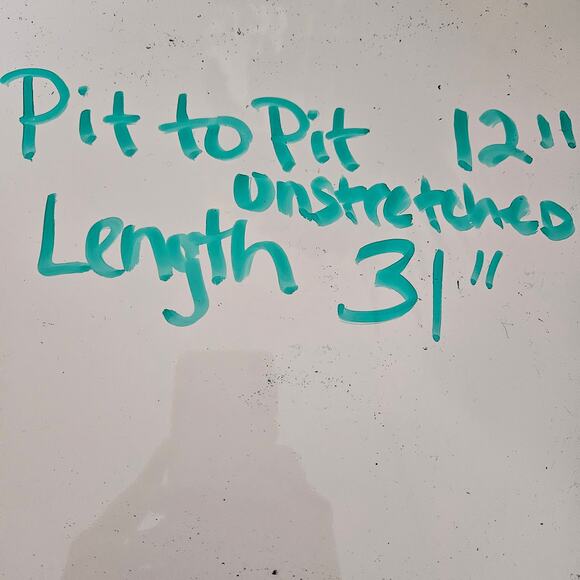 Pit to Pit 12"
unstretched
Length 31"